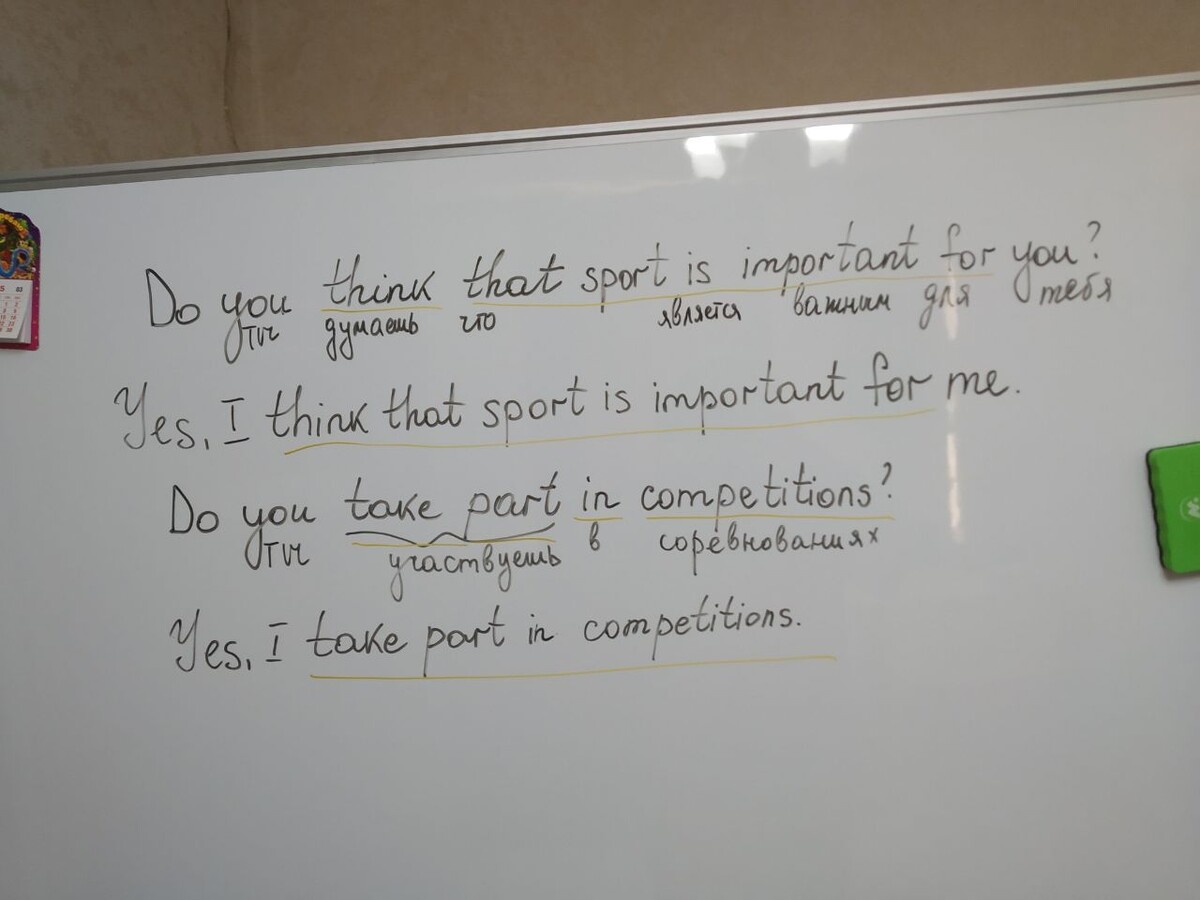 Do you think that sport is important for you?
ты думаешь что является важным для тебя
Yes, I think that sport is important for me.
Do you take part in competitions?
ты участвуешь в соревнованиях
Yes, I take part in competitions.